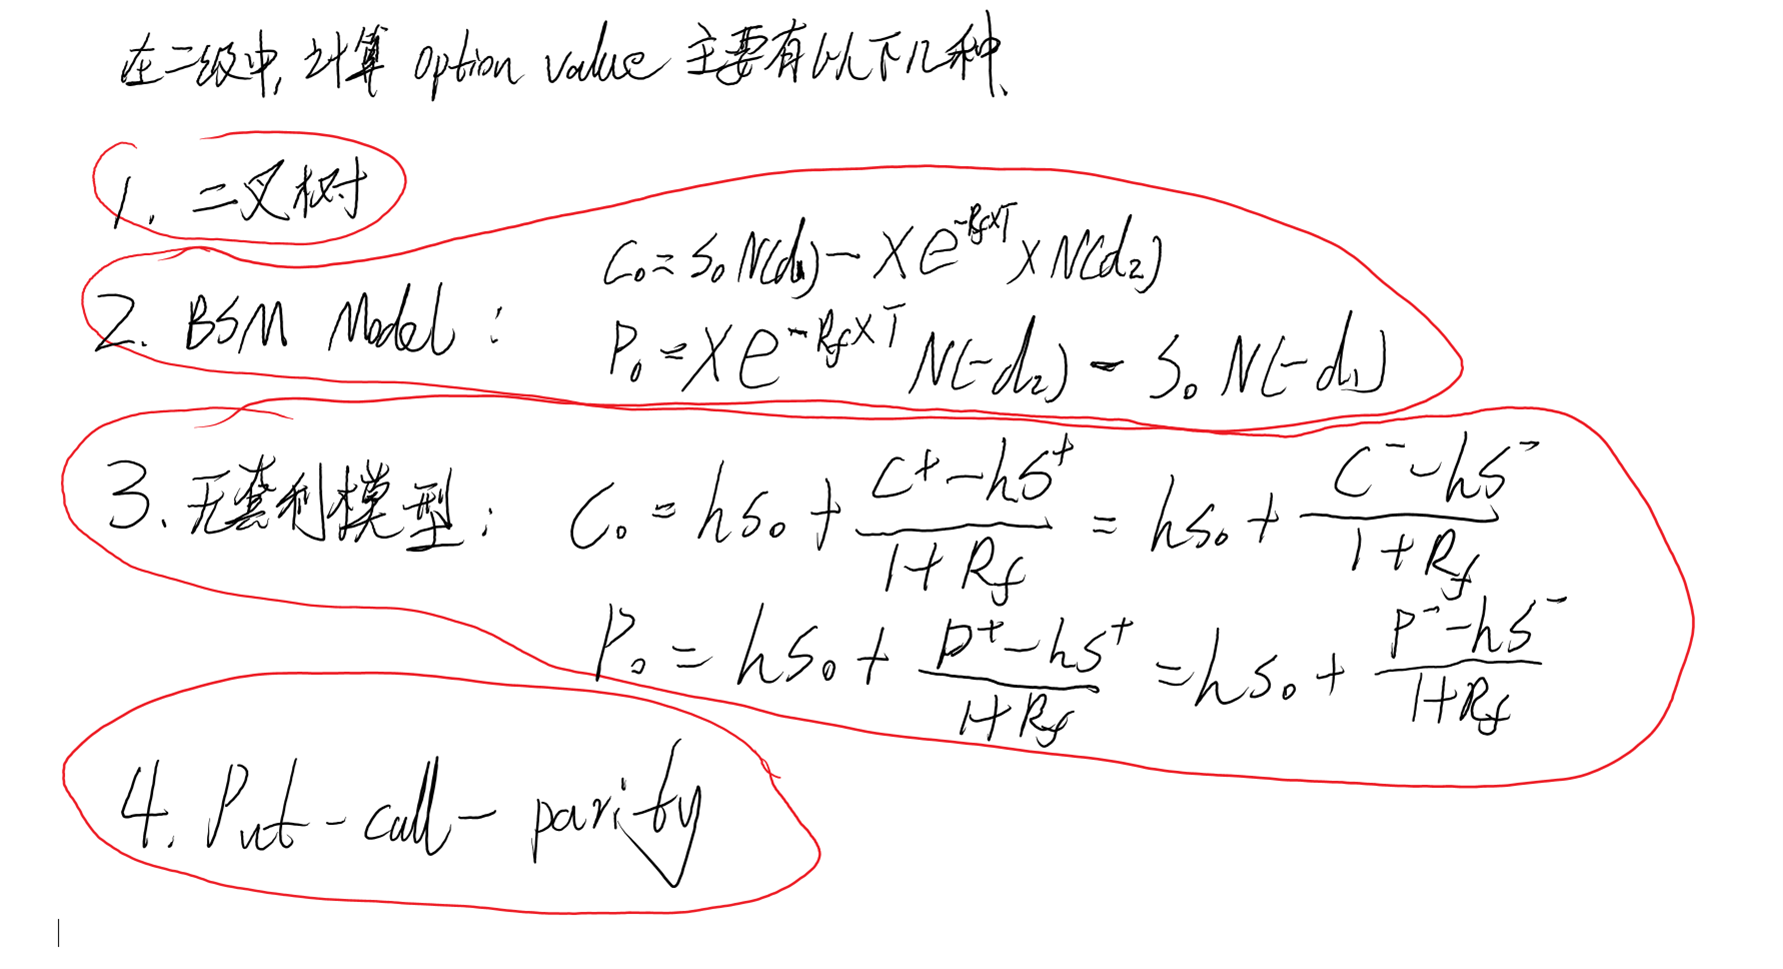 在二级中,计算 option value 主要有以下几种.
1. 二叉树
2. BSM Model: C₀ = S₀ N(d₁) − X e^(−Rf×T) × N(d₂)
P₀ = X e^(−Rf×T) N(−d₂) − S₀ N(−d₁)
3. 无套利模型: C₀ = hS₀ + (C⁺ − hS⁺)/(1 + Rf) = hS₀ + (C⁻ − hS⁻)/(1 + Rf)
P₀ = hS₀ + (P⁺ − hS⁺)/(1 + Rf) = hS₀ + (P⁻ − hS⁻)/(1 + Rf)
4. Put-call-parity